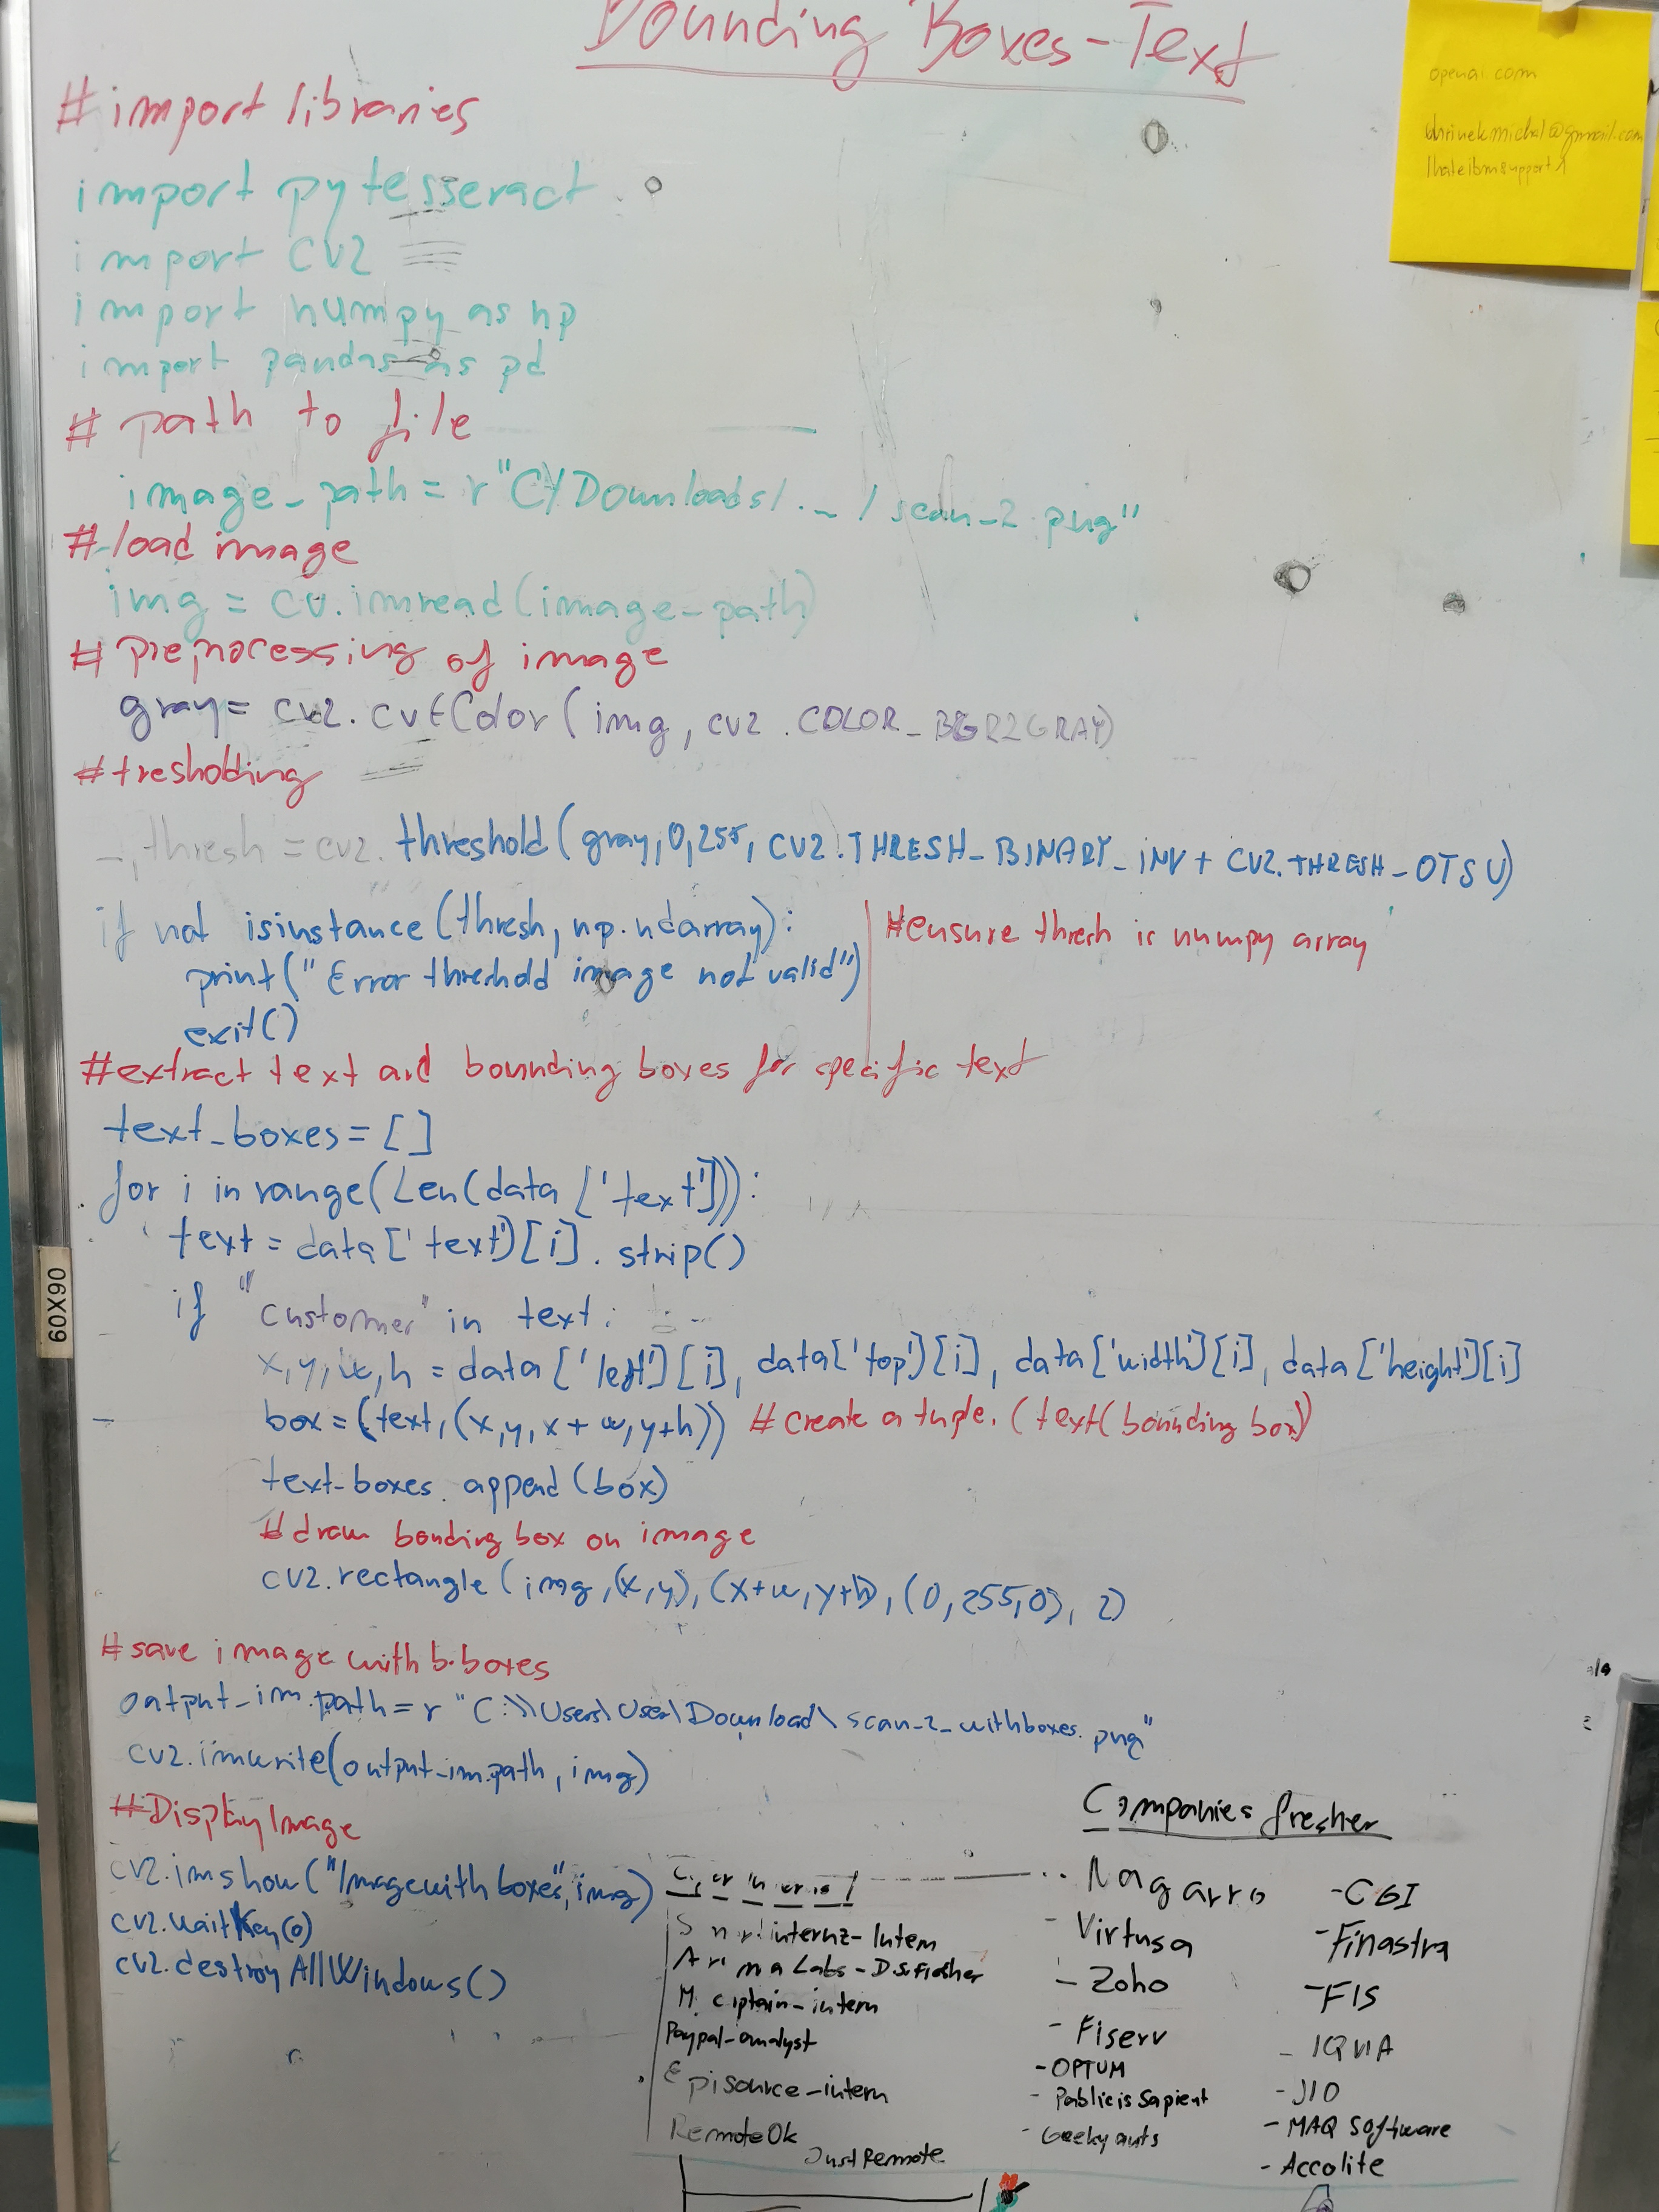 Bounding Boxes-Text
openai.com
#import libraries
import pytesseract
import cv2
import numpy as np
import pandas as pd
# path to file
image_path = r"C:/Downloads/.../scan_2.png"
#load image
img = cv.imread(image_path)
# preprocessing of image
gray = cv2.cvtColor(img, cv2.COLOR_BGR2GRAY)
#tresholding
_, thresh = cv2.threshold(gray, 0, 255, cv2.THRESH_BINARY_INV + cv2.THRESH_OTSU)
if not isinstance(thresh, np.ndarray): #ensure thresh is numpy array
print("Error threshold image not valid")
exit()
#extract text and bounding boxes for specific text
text_boxes = []
for i in range(len(data['text'])):
text = data['text'][i].strip()
if "customer" in text:
x,y,w,h = data['left'][i], data['top'][i], data['width'][i], data['height'][i]
box = (text, (x,y,x+w,y+h)) # create a tuple. (text(bounding box))
text_boxes.append(box)
#draw bonding box on image
cv2.rectangle(img, (x,y), (x+w,y+h), (0,255,0), 2)
#save image with b.boxes
output_im.path = r"C:\\Users\User\Download\scan_2_withboxes.png"
cv2.imwrite(output_im.path, img)
#Display Image
cv2.imshow("Image with boxes", img)
cv2.waitKey(0)
cv2.destroyAllWindows()
60X90
Companies fresher
internz-Intern
Labs-DS fresher
-intern
Paypal-analyst
Episource-intern
RemoteOk
JustRemote
Nagarro
- Virtusa
- Zoho
- Fiserv
- OPTUM
- Publicis Sapient
- Geekyants
- CGI
- Finastra
- FIS
- IQVIA
- JIO
- MAQ Software
- Accolite